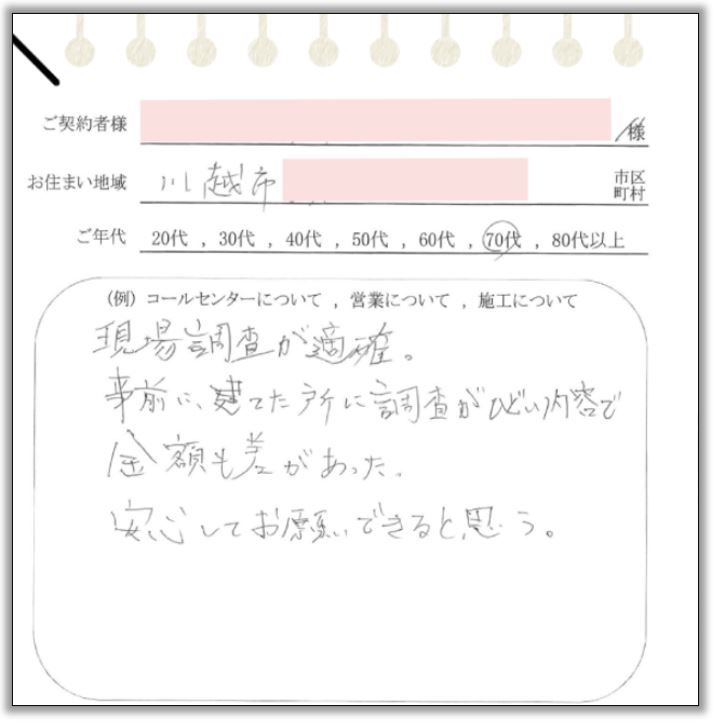 ご契約者様 様
お住まい地域 川越市 市区町村
ご年代 20代 , 30代 , 40代 , 50代 , 60代 , 70代 , 80代以上
（例）コールセンターについて , 営業について , 施工について
現場調査が適確。
事前に、建てた所に調査がひどい内容で
金額も差があった。
安心してお願いできると思う。